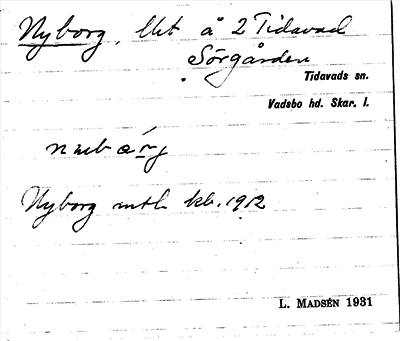 Nyborg, lht å 2 Tidavad
Sörgården
Tidavads sn.
Vadsbo hd. Skar. l.
Nyborg mtl. kb. 1912
L. MADSÉN 1931